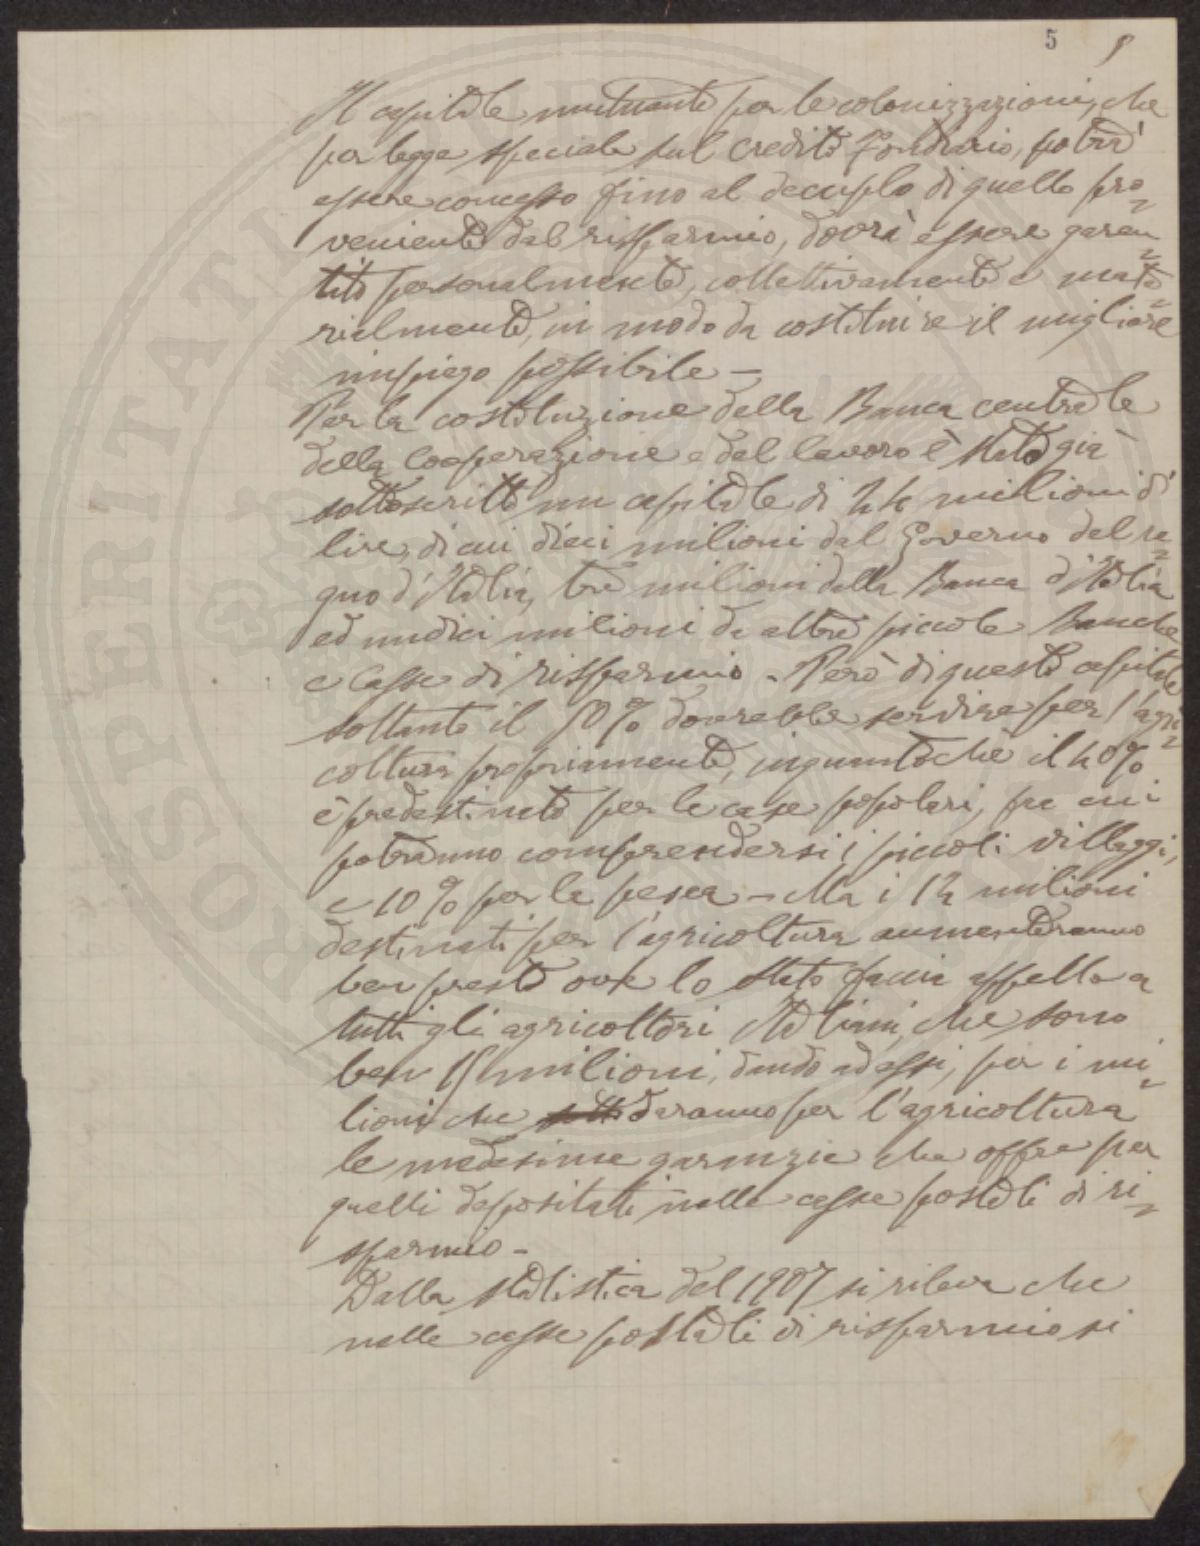 5 5
Il capitale mutuante per le colonizzazioni, che
per legge speciale sul credito fondiario, potrà
essere concesso fino al decuplo di quello pro=
veniente dal risparmio, dovrà essere garen=
tito personalmente, collettivamente e mate=
rialmente, in modo da costituire il migliore
impiego possibile –
Per la costituzione della Banca centrale
della Cooperazione e del lavoro è stato già
sottoscritto un capitale di 24 milioni di
lire, di cui dieci milioni dal Governo del re=
gno d'Italia, tre milioni dalla Banca d'Italia
ed undici milioni da altre piccole Banche
e Casse di risparmio. Però di questo capitale
soltanto il 50% dovrebbe servire per l'agri=
coltura propriamente, inquantochè il 40%
è predestinato per le case popolari, fra cui
potranno comprendersi i piccoli villaggi,
e 10% per la pesca – Ma i 12 milioni
destinati per l'agricoltura aumenteranno
ben presto ove lo Stato faccia appello a
tutti gli agricoltori Italiani, che sono
ben 15 milioni, dando ad essi, per i mi=
lioni che daranno per l'agricoltura
le medesime garanzie che offre per
quelli depositati nelle casse postali di ri=
sparmio –
Dalla statistica del 1907 si rileva che
nelle casse postali di risparmio si
PROSPERITATI